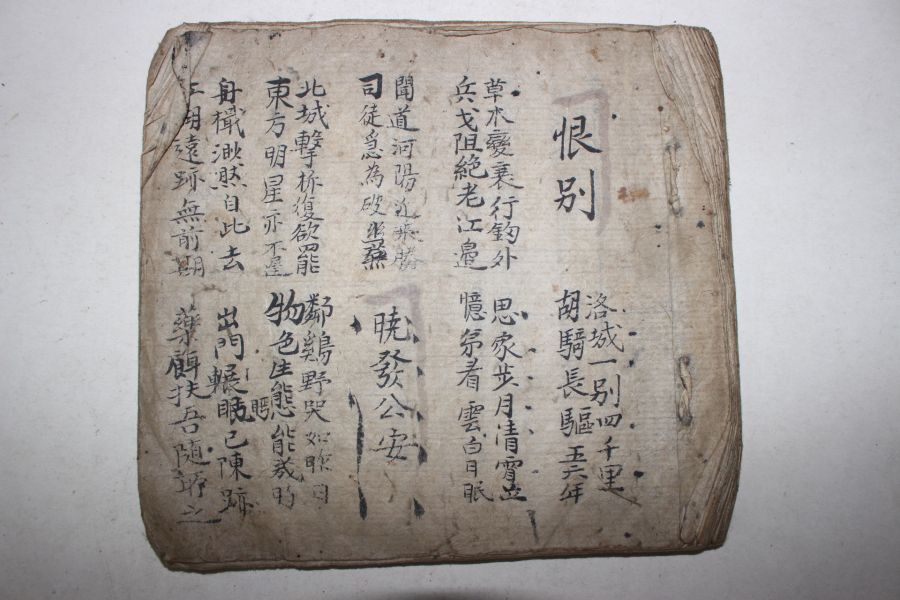 恨別
洛城一別四千里
胡騎長驅五六年
草木變衰行釣外
兵戈阻絶老江邉
思家步月清霄立
憶弟看雲白日眠
聞道河陽近乘勝
司徒急為破幽燕
曉發公安
北城擊柝復欲罷
東方明星亦不遲
鄰鷄野哭如昨日
物色生態能幾時
舟檝渺然自此去
江湖遠跡無前期
出門輾眄已陳跡
藥餌扶吾隨所之